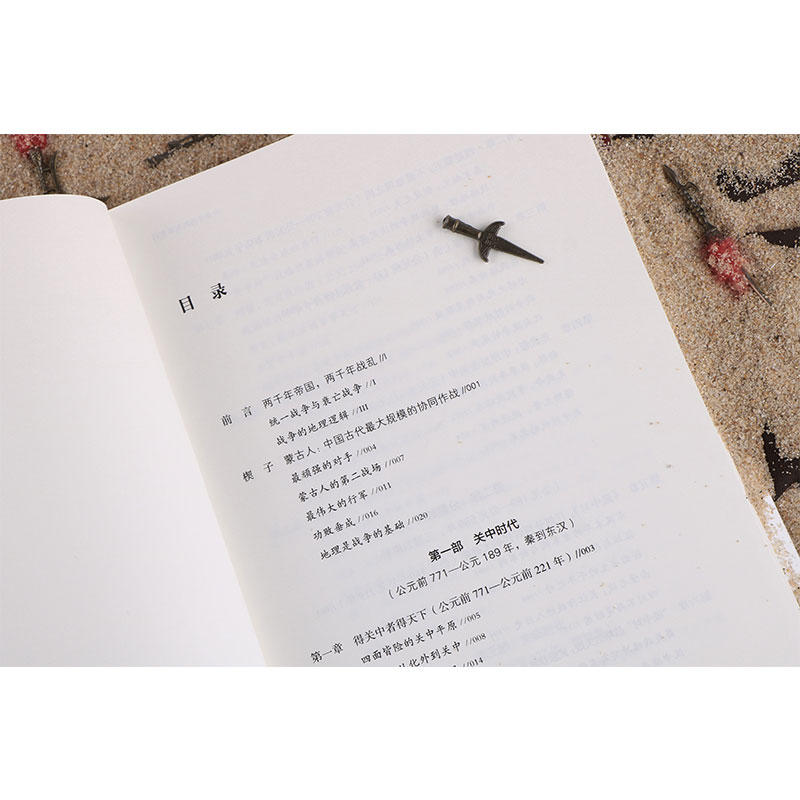 目 录
前 言 两千年帝国，两千年战乱//I
统一战争与衰亡战争//I
战争的地理逻辑//III
楔 子 蒙古人：中国古代最大规模的协同作战//001
最顽强的对手//004
蒙古人的第二战场//007
最伟大的行军//011
功败垂成//016
地理是战争的基础//020
第一部 关中时代
（公元前771—公元189年，秦到东汉）
第一章 得关中者得天下（公元前771—公元前221年）//003
四面皆险的关中平原//005
化外到关中//008
//014